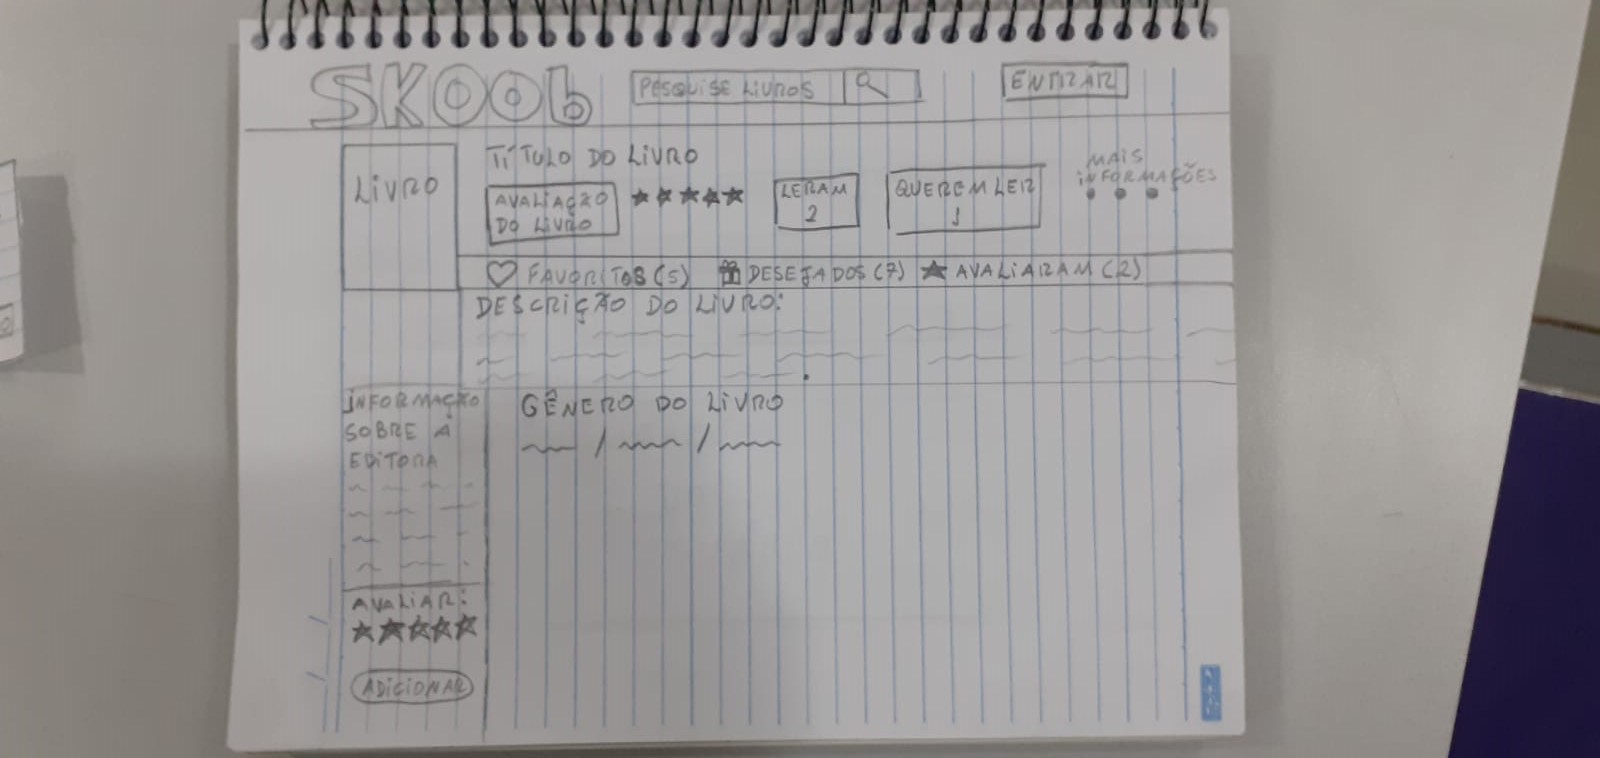 SKOOb
PESQUISE LIVROS
ENTRAR
LIVRO
TÍTULO DO LIVRO
AVALIAÇÃO
DO LIVRO
LERAM
2
QUEREM LER
1
MAIS
INFORMAÇÕES
FAVORITOS (5)
DESEJADOS (7)
AVALIARAM (2)
DESCRIÇÃO DO LIVRO:
INFORMAÇÃO
SOBRE A
EDITORA
GÊNERO DO LIVRO
/ /
AVALIAR:
ADICIONAR